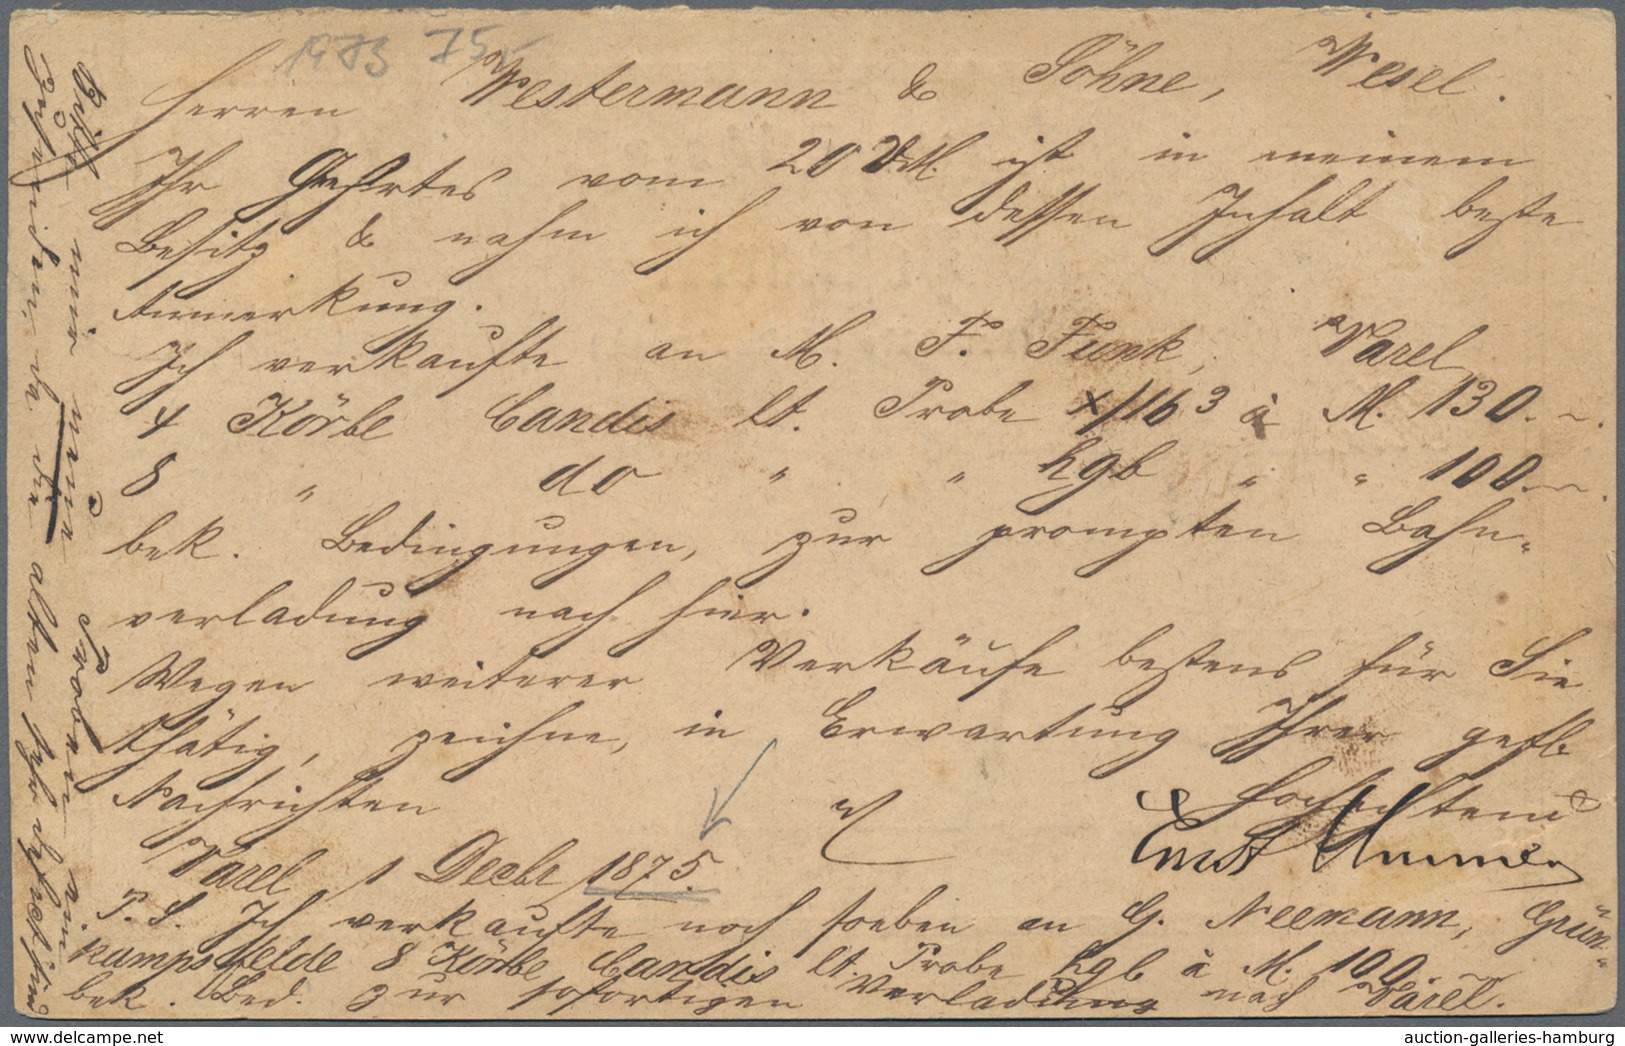 1983 75,-
Herren Westermann & Söhne, Wesel.
Ihr Geehrtes vom 20 v.M. ist in meinem
Besitz & nahm ich von dessen Inhalt beste
Anmerkung.
Ich verkaufte an M. F. Funk, Varel
4 Körbe Candis lt. Probe X/116 3 à M. 130.-.
8 " do " " hgb " " 100.-.
bek. Bedingungen, zur prompten Bahn-
verladung nach hier.
Wegen weiterer Verkäufe bestens für Sie
thätig, zeichne, in Erwartung Ihrer gefl.
Nachrichten
Hochachtend
Varel 1 Decbr 1875
Ernst
P.S. Ich verkaufte noch soeben an G. Neemann, Grün-
kampsfelde 8 Körbe Candis lt. Probe hgb à M. 100.
bek. Bed. zur sofortigen Verladung nach Varel.
Bitte mir neue Proben ein-
zusenden, da die alten sehr
auction-galleries-hamburg